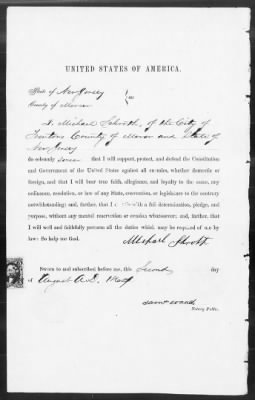 UNITED STATES OF AMERICA.
State of New Jersey
County of Mercer } ss:
I, Michael of the City of
Trenton County of Mercer and State of
New Jersey
do solemnly that I will support, protect, and defend the Constitution
and Government of the United States against all enemies, whether domestic or
foreign, and that I will bear true faith, allegiance, and loyalty to the same, any
ordinance, resolution, or law of any State, convention, or legislature to the contrary
notwithstanding; and, further, that I do this with a full determination, pledge, and
purpose, without any mental reservation or evasion whatsoever; and, further, that
I will well and faithfully perform all the duties which may be required of me by
law: So help me God.
Michael
Sworn to and subscribed before me, this Second day
of August A.D.
Notary Public.